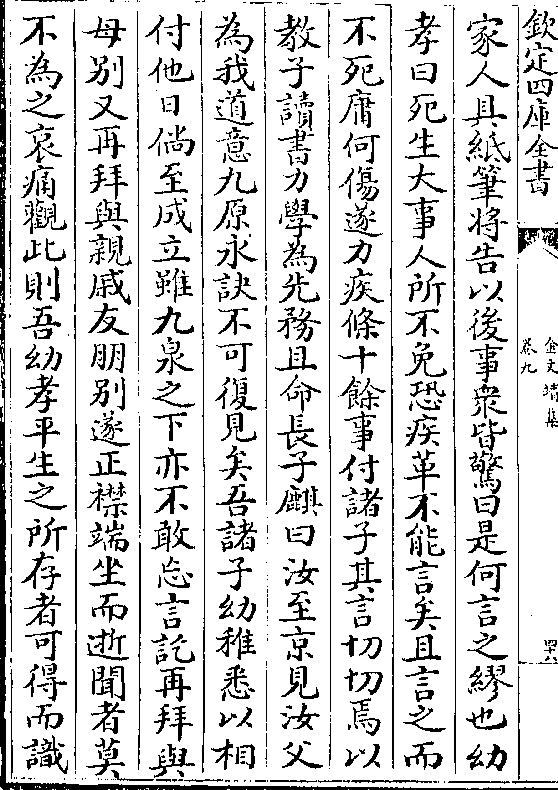 欽定四庫全書
金文靖集
卷九
四八
家人具紙筆將告以後事衆皆驚曰是何言之繆也幼
孝曰死生大事人所不免恐疾革不能言矣且言之而
不死庸何傷遂力疾條十餘事付諸子其言切切焉以
教子讀書力學為先務且命長子麒曰汝至京見汝父
為我道意九原永訣不可復見矣吾諸子幼稚悉以相
付他日倘至成立雖九泉之下亦不敢忘言訖再拜與
母別又再拜與親戚友朋別遂正襟端坐而逝聞者莫
不為之哀痛觀此則吾幼孝平生之所存者可得而識